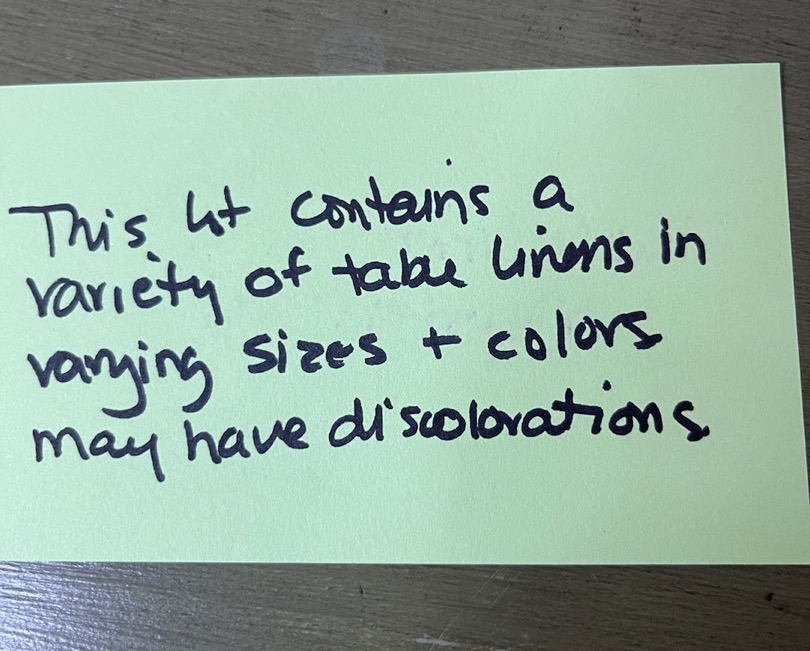 This lot contains a
variety of table linens in
varying sizes + colors
may have discolorations